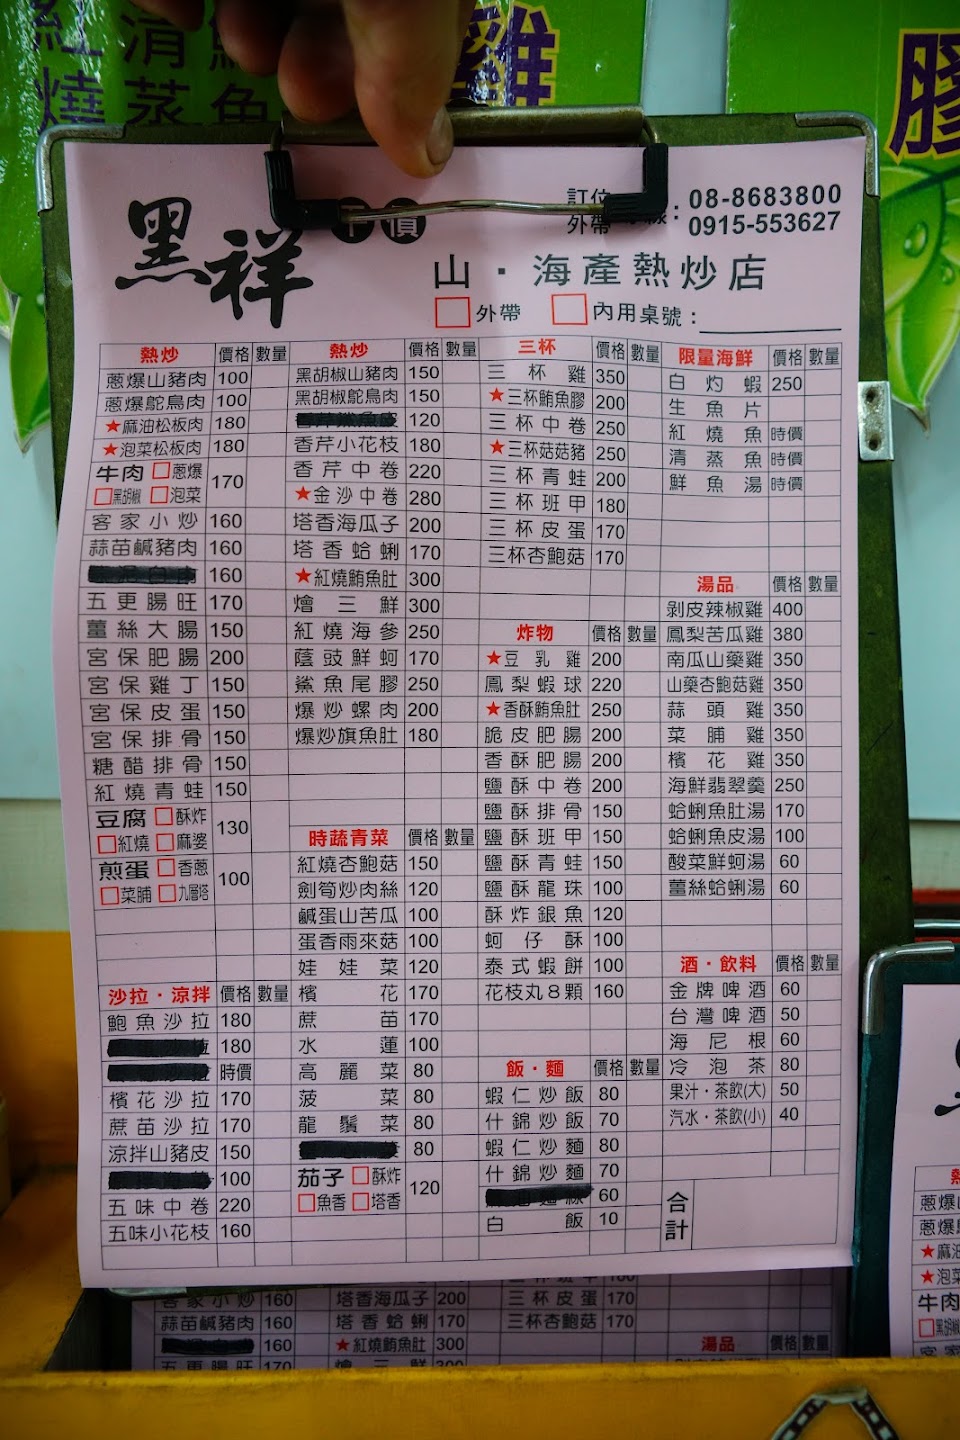 紅清
燒蒸魚
雞
膠
黑祥
平價
訂位
外帶
08-8683800
0915-553627
山·海產熱炒店
外帶 內用桌號：
熱炒 價格 數量
蔥爆山豬肉 100
蔥爆鴕鳥肉 100
★麻油松板肉 180
★泡菜松板肉 180
牛肉 蔥爆 170
黑胡椒 泡菜
客家小炒 160
蒜苗鹹豬肉 160
160
五更腸旺 170
薑絲大腸 150
宮保肥腸 200
宮保雞丁 150
宮保皮蛋 150
宮保排骨 150
糖醋排骨 150
紅燒青蛙 150
豆腐 酥炸 130
紅燒 麻婆
煎蛋 香蔥 100
菜脯 九層塔
沙拉·涼拌 價格 數量
鮑魚沙拉 180
180
時價
檳花沙拉 170
蔗苗沙拉 170
涼拌山豬皮 150
100
五味中卷 220
五味小花枝 160
熱炒 價格 數量
黑胡椒山豬肉 150
黑胡椒鴕鳥肉 150
120
香芹小花枝 180
香芹中卷 220
★金沙中卷 280
塔香海瓜子 200
塔香蛤蜊 170
★紅燒鮪魚肚 300
燴三鮮 300
紅燒海參 250
蔭豉鮮蚵 170
鯊魚尾膠 250
爆炒螺肉 200
爆炒旗魚肚 180
時蔬青菜 價格 數量
紅燒杏鮑菇 150
劍筍炒肉絲 120
鹹蛋山苦瓜 100
蛋香雨來菇 100
娃娃菜 120
檳花 170
蔗苗 170
水蓮 100
高麗菜 80
菠菜 80
龍鬚菜 80
80
茄子 酥炸 120
魚香 塔香
三杯 價格 數量
三杯雞 350
★三杯鮪魚膠 200
三杯中卷 250
★三杯菇菇豬 250
三杯青蛙 200
三杯班甲 180
三杯皮蛋 170
三杯杏鮑菇 170
炸物 價格 數量
★豆乳雞 200
鳳梨蝦球 220
★香酥鮪魚肚 250
脆皮肥腸 200
香酥肥腸 200
鹽酥中卷 200
鹽酥排骨 150
鹽酥班甲 150
鹽酥青蛙 150
鹽酥龍珠 100
酥炸銀魚 120
蚵仔酥 100
泰式蝦餅 100
花枝丸8顆 160
飯·麵 價格 數量
蝦仁炒飯 80
什錦炒飯 70
蝦仁炒麵 80
什錦炒麵 70
60
白飯 10
限量海鮮 價格 數量
白灼蝦 250
生魚片
紅燒魚 時價
清蒸魚 時價
鮮魚湯 時價
湯品 價格 數量
剝皮辣椒雞 400
鳳梨苦瓜雞 380
南瓜山藥雞 350
山藥杏鮑菇雞 350
蒜頭雞 350
菜脯雞 350
檳花雞 350
海鮮翡翠羹 250
蛤蜊魚肚湯 170
蛤蜊魚皮湯 100
酸菜鮮蚵湯 60
薑絲蛤蜊湯 60
酒·飲料 價格 數量
金牌啤酒 60
台灣啤酒 50
海尼根 60
冷泡茶 80
果汁·茶飲(大) 50
汽水·茶飲(小) 40
合計
客家小炒 160
蒜苗鹹豬肉 160
160
五更腸旺 170
塔香海瓜子 200
塔香蛤蜊 170
★紅燒鮪魚肚 300
燴三鮮 300
三杯皮蛋 170
三杯杏鮑菇 170
湯品 價格 數量
蔥爆
蔥爆
★麻油
★泡菜
牛肉
黑胡椒